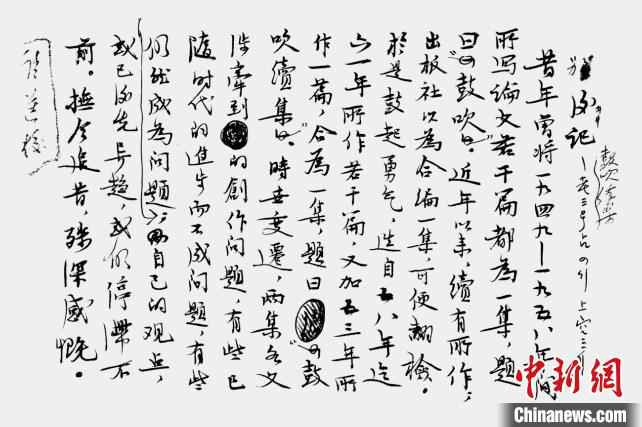 后记
鼓吹续集
昔年曾将一九四九—一九五八年间
所写論文若干篇都為一集,題
曰《鼓吹》。近年以来,續有所作,
出版社以為合编一集,可便翻檢。
於是鼓起勇气,选自五八年迄
六一年所作若干篇,又加五三年所
作一篇,合為一集,題曰《鼓
吹續集》。時世变遷,两集各文
涉牽到的創作问題,有些已
随时代的進步而不成问題,有些
仍然成為问題;而自己的观点,
或已先异趨,或仍停滯不
前。撫今追昔,殊深感慨。
中新網
Chinanews.com